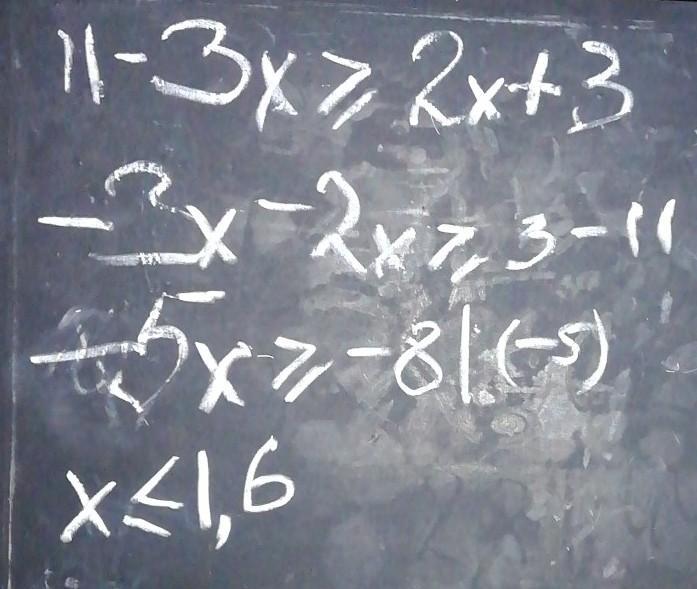 11-3x ⩾ 2x+3
-3x-2x ⩾ 3-11
-5x ⩾ -8 |:(-5)
x ≤ 1,6